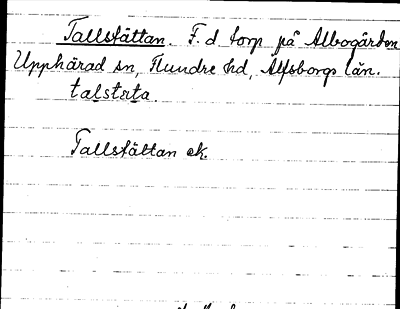 Tallstättan. F. d torp på Albogården
Upphärad sn, Flundre hd, Älfsborgs län.
talstäta.
Tallstättan ek.